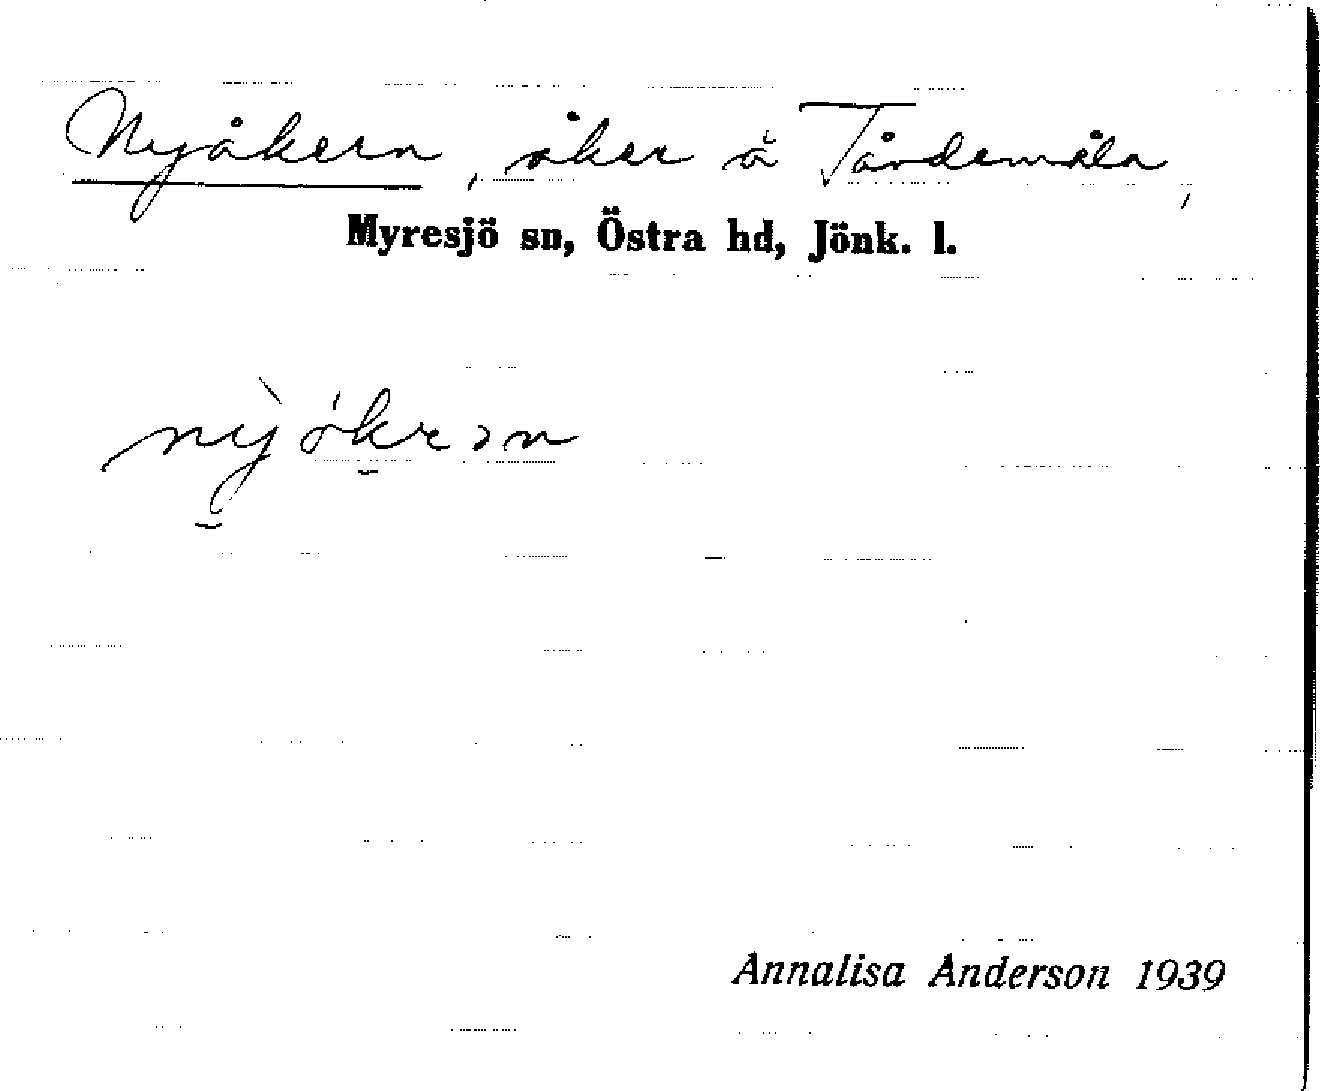 Nyåkern, åker å Tårdemåla,
Myresjö sn, Östra hd, Jönk. l.
Annalisa Anderson 1939